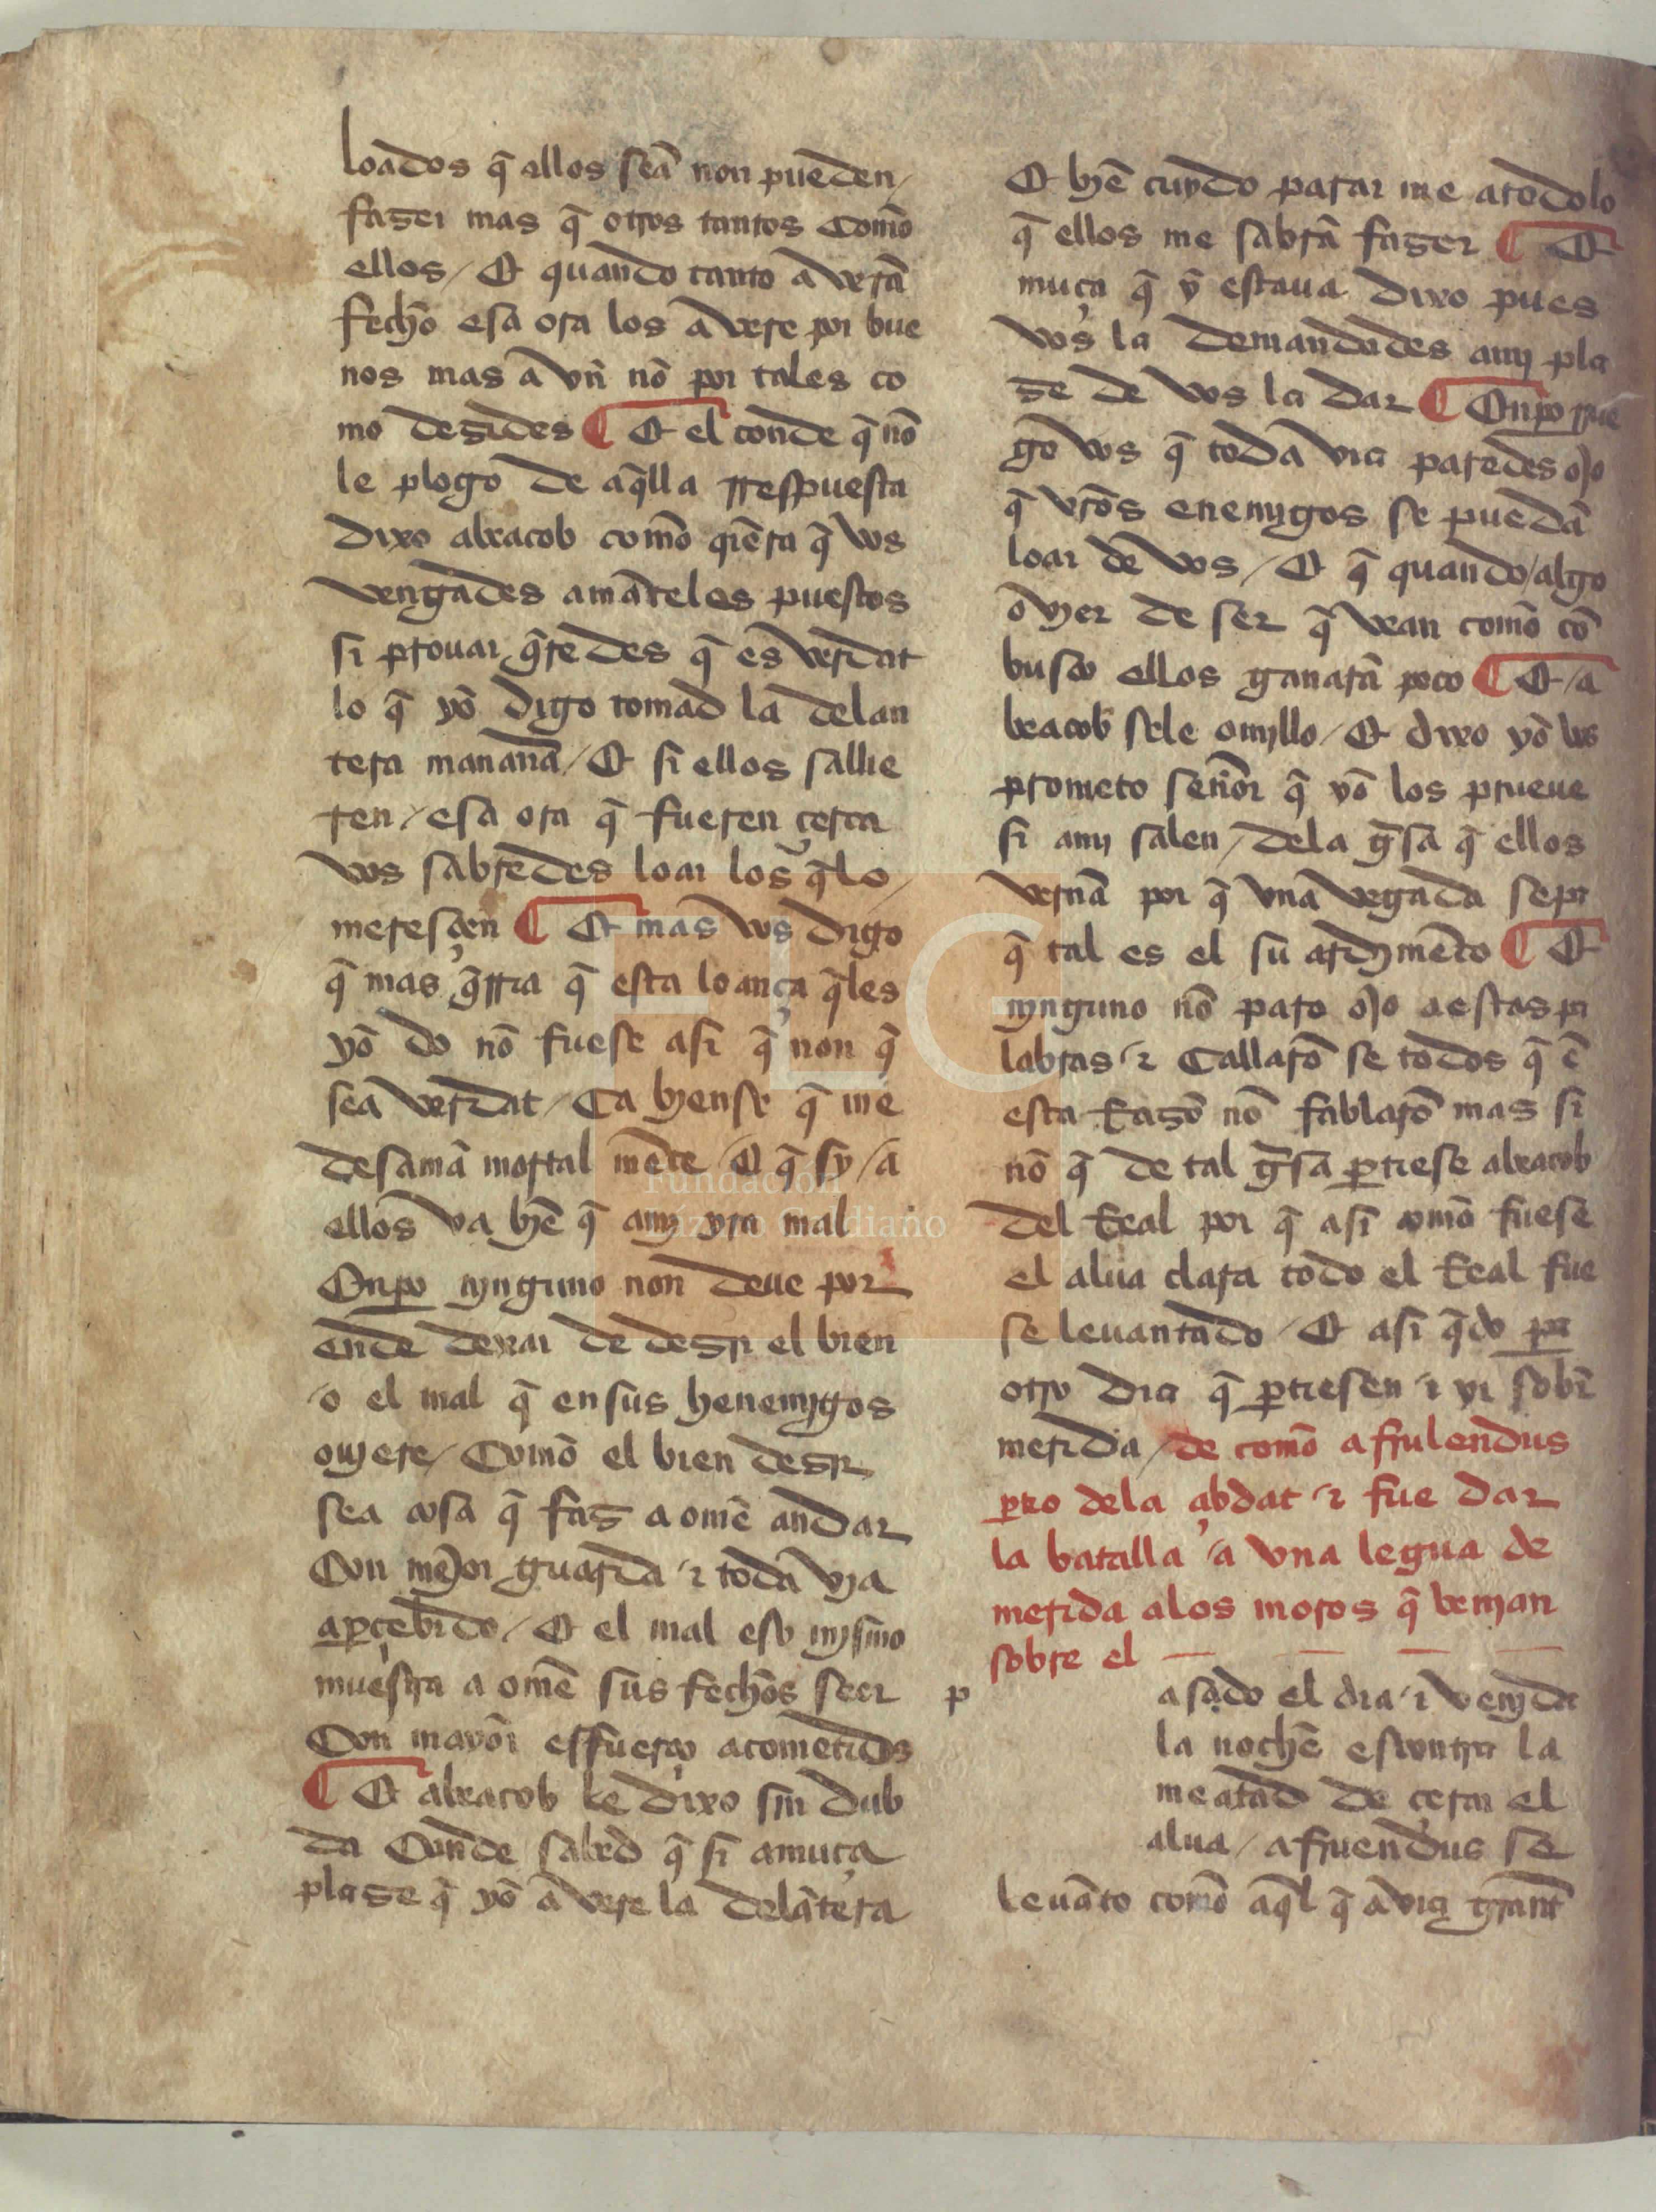 loados q̄ ellos seā non pueden /
faser mas q̄ otros tantos Comō
ellos / Et quando tanto a verā
fechō esa ora los a vere por bue
nos mas a vn̄ nō por tales co
mo desides ¶ Et el conde q̄ nō
le plogo de aq̄lla rrespuesta
dixo abxacob comō q̄era q̄ vos
vengades amāteles puestos
si prouar q̄redes q̄ es verdat
lo q̄ yō digo tomad la delan
tera manāna / Et si ellos sallie
ren / esa ora q̄ fueren çerca
vos sabredes loar los q̄ lo /
meresçen ¶ Et mas vos digo
q̄ mas q̄rria q̄ esta loança q̄les
yō do nō fuese asi q̄ non q̄
sea verdat / Ca byense q̄ me
desamā mortal mēte / Et q̄ sy / a
ellos va byē q̄ amj yra mal
Onpo njnguno non deue por
ende dexar de desir el bien
/ o el mal q̄ en sus henemjgos
oujere / Comō el bien desir
sea cosa q̄ fas a omē andar
Con mējor guarda ⁊ toda vja
aperçebido / Et el mal eso mjsmo
muestra a omē sus fechōs seer
Con mayōr esfuerço acometidos
¶ Et abxacob le dixo sin dub
da Conde sabed q̄ si a muça
plase q̄ yō a vere la delātera
Et byē cuydo parar me a todo lo
q̄ ellos me sabrā faser ¶ Et
muça q̄ ȳ estaua dixo pues
vos la demandades amj pla
se de vos la dar ¶ Onpo rrue
go vos q̄ toda via paredes ojo
q̄ vrōs enemjgos se puedā
loar de vos / Et q̄ quando / algo
o vyer de ser q̄ vean comō cō
busco ellos ganarā poco ¶ Et / a
bxacob sele omjllo / Et dixo yō vos
prometo señor q̄ yō los prueue
si amj salen / dela ḡsa q̄ ellos
vernā por q̄ vna vegada sepa
q̄ tal es el su ardymēto ¶ Et
njnguno nō paro ojo a estas pa
labras ⁊ Callarō se todos q̄ ē
esta Rasō nō fablarō mas si
nō q̄ de tal ḡsa ꝑtiese abxacob
del Real por q̄ asi comō fuese
el alua clara todo el Real fue
se leuantado / Et asi q̄do por
otro dia q̄ ꝑtiesen ⁊ yr sobrē
merida / de comō afrulendus
ꝑtio dela çibdat ⁊ fue dar
la batalla / a vna legua de
merida alos moros q̄ venjan
sobre el
p asado el dia ⁊ venjda
la nochē escontra la
meatad de çerca el
alua / afruendus se
leuāto comō aq̄l q̄ a via grant